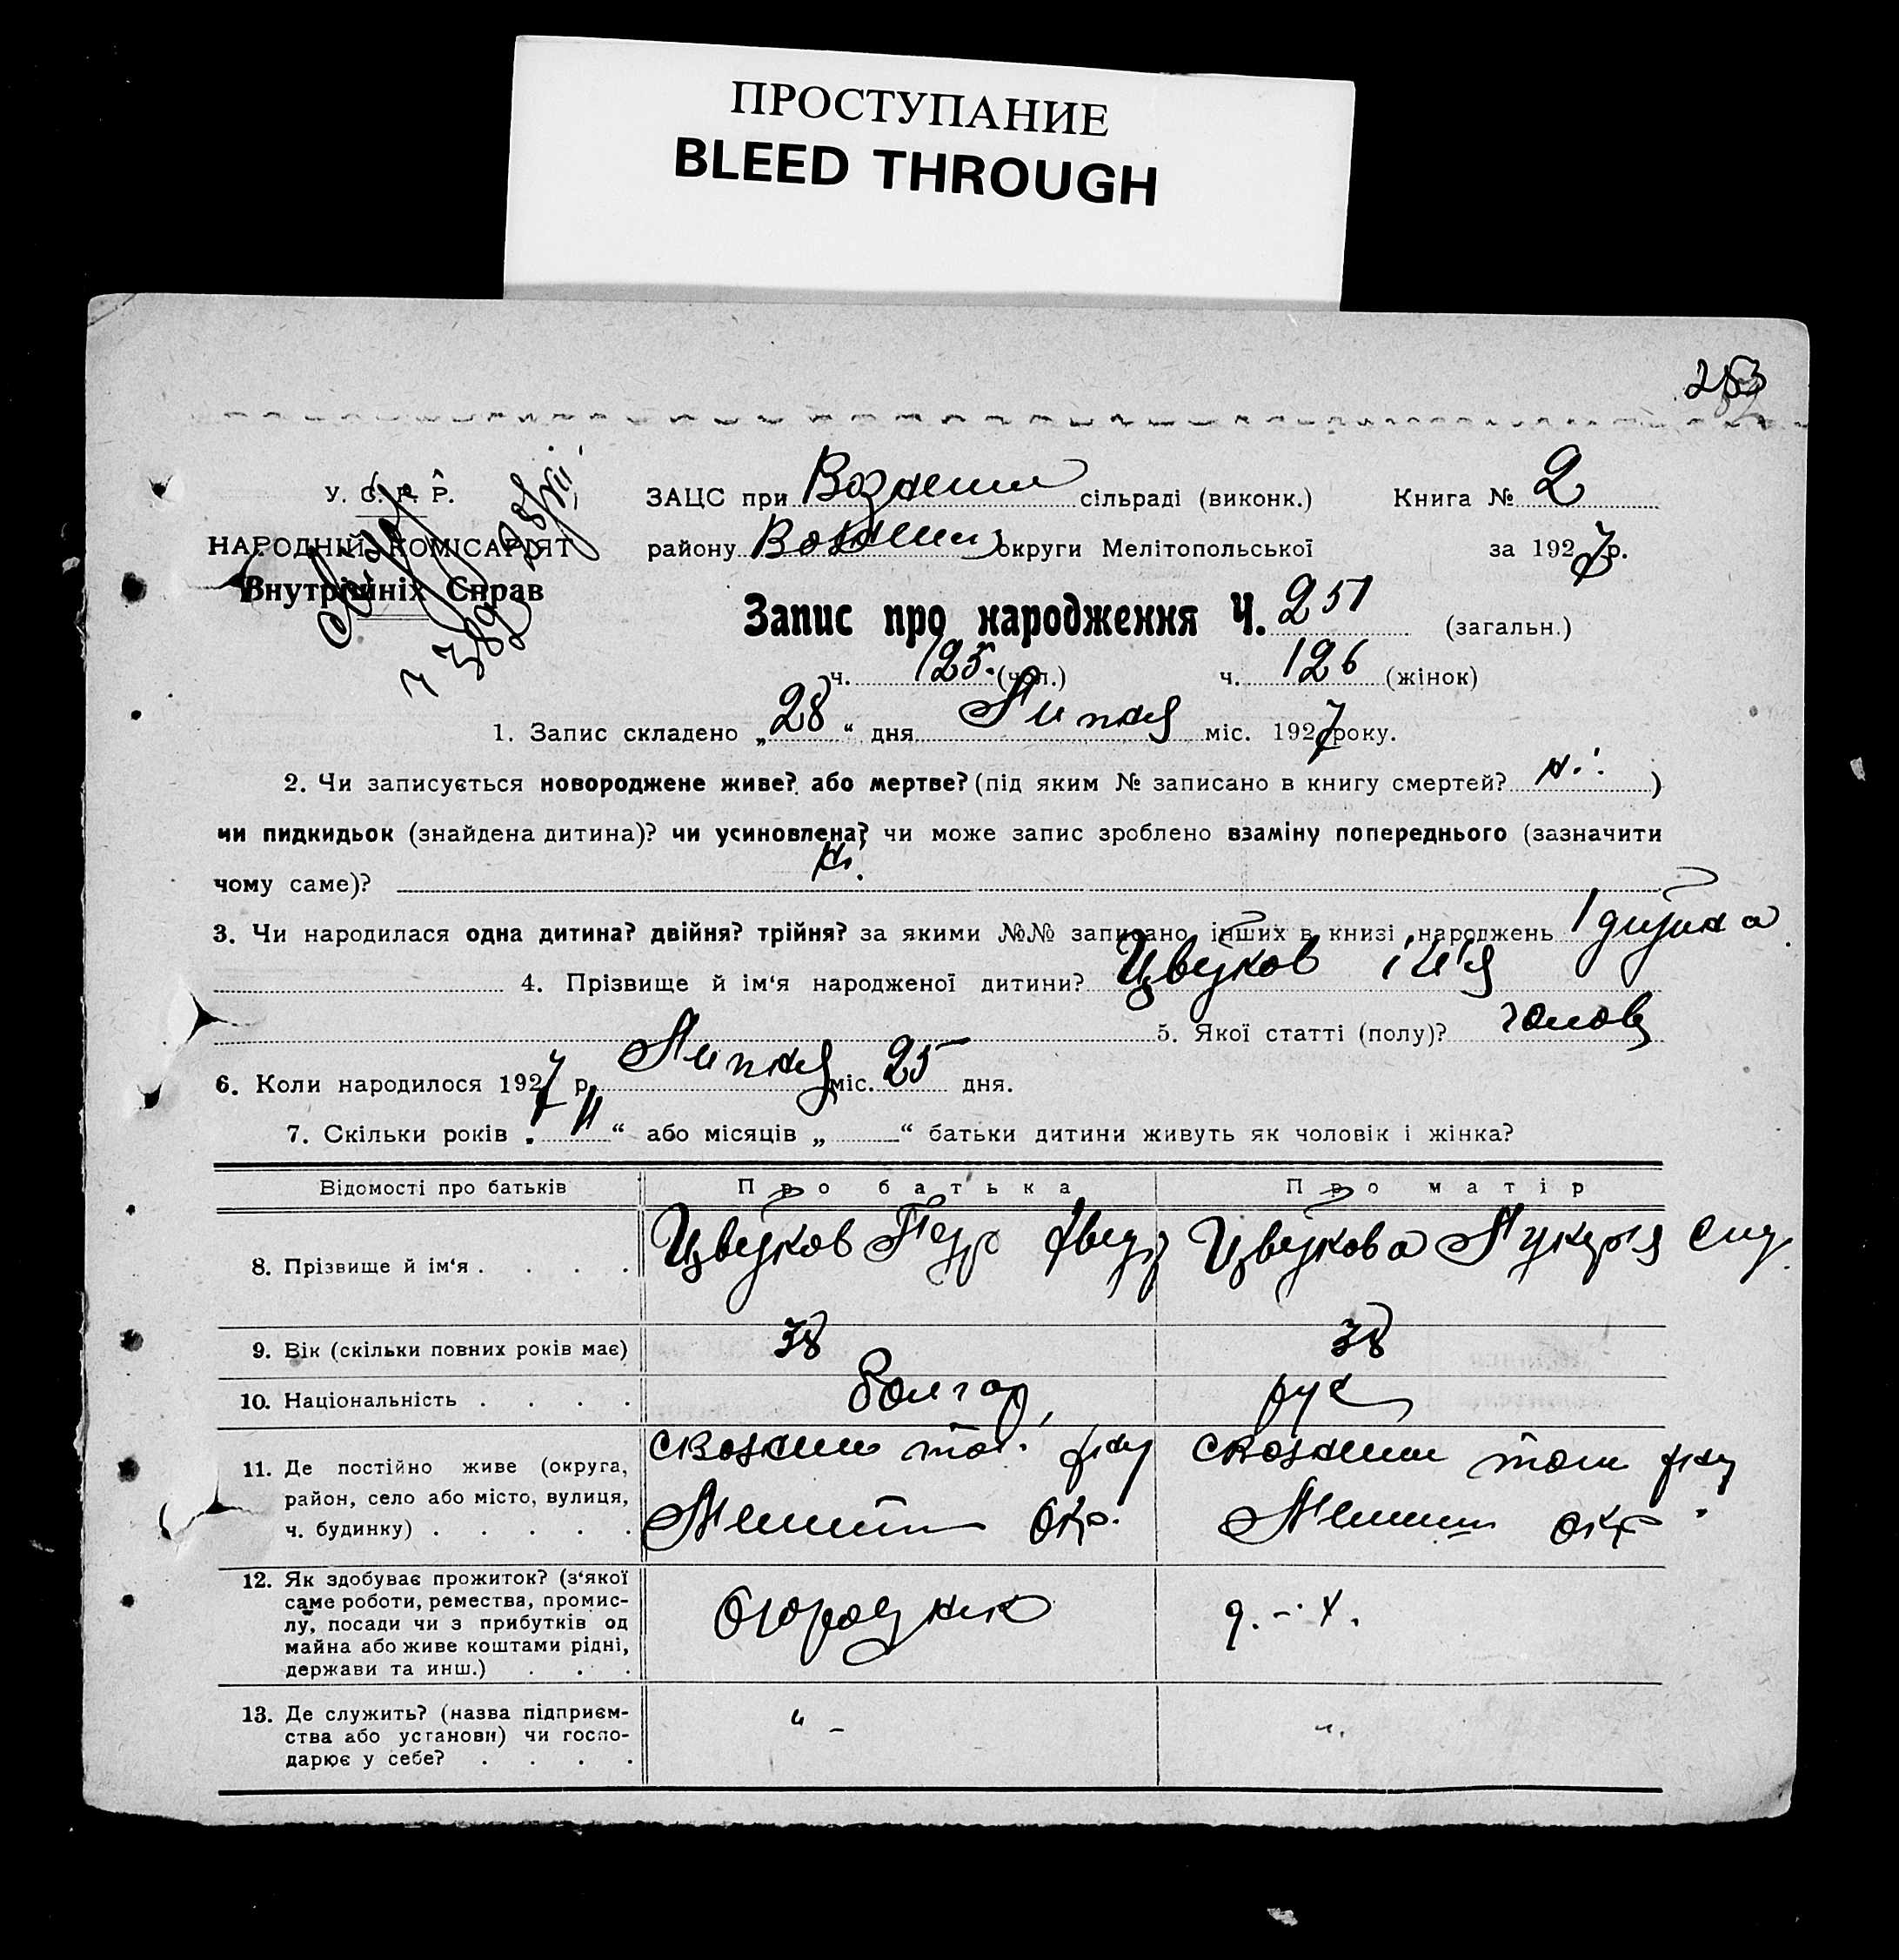 ПРОСТУПАНИЕ
BLEED THROUGH
253
У. С. Р. Р.
НАРОДНІЙ КОМІСАРІЯТ
Внутрішніх Справ
ЗАЦС при Вознесен сільраді (виконк.) Книга № 2
району Вознесен округи Мелітопольської за 1927 р.
Запис про народження Ч. 251 (загальн.)
ч. 125. (чол.) ч. 126 (жінок)
1. Запис складено „28“ дня Липня міс. 1927 року.
2. Чи записується новороджене живе? або мертве? (під яким № записано в книгу смертей? )
чи пидкидьок (знайдена дитина)? чи усиновлена? чи може запис зроблено взаміну попереднього (зазначити
чому саме)?
3. Чи народилася одна дитина? двійня? трійня? за якими №№ записано інших в книзі народжень 1
4. Прізвище й ім‘я народженої дитини? Цвітков
5. Якої статті (полу)? чолов
6. Коли народилося 1927 р. Липня міс. 25 дня.
7. Скільки років „ “ або місяців „ “ батьки дитини живуть як чоловік і жінка?
Відомості про батьків Про батька Про матір
8. Прізвище й ім‘я . . . . Цвітков Петро Цвіткова Лукерія
9. Вік (скільки повних років має) 38 38
10. Національність . . . . болгар рус
11. Де постійно живе (округа,
район, село або місто, вулиця,
ч. будинку) . . . . . Меліт окр. Меліт окр.
12. Як здобуває прожиток? (з‘якої
саме роботи, ремества, промис-
лу, посади чи з прибутків од
майна або живе коштами рідні,
держави та инш.) . . . Огородник
13. Де служить? (назва підприєм-
ства або установи) чи госпо-
дарює у себе? . . . .